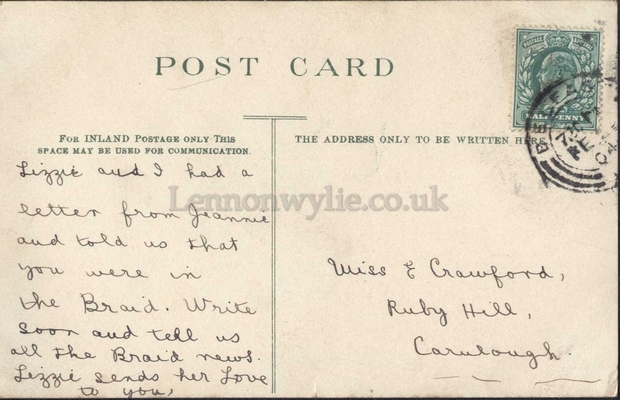 POST CARD
POSTAGE REVENUE
HALFPENNY
FOR INLAND POSTAGE ONLY THIS
SPACE MAY BE USED FOR COMMUNICATION.
THE ADDRESS ONLY TO BE WRITTEN HERE.
Lizzie and I had a
letter from Jeannie
and told us that
you were in
the Braid. Write
soon and tell us
all the Braid news.
Lizzie sends her Love
to you,
Lennonwylie.co.uk
Miss E Crawford,
Ruby Hill,
Carulough.